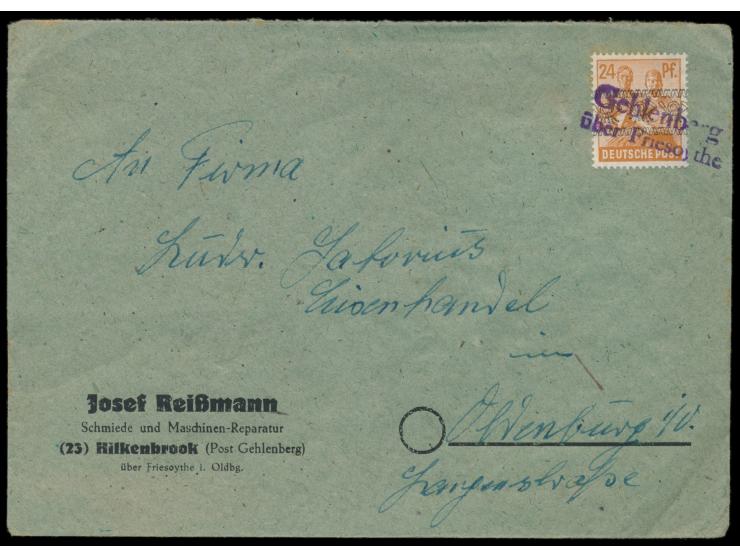 24 Pf.
Gehlenberg
über Friesoythe
DEUTSCHE POST
An Firma
Ludw. Satorius
Eisenhandel
in
Oldenburg i/O.
Langenstraße
Josef Reißmann
Schmiede und Maschinen-Reparatur
(23) Hilkenbrook (Post Gehlenberg)
über Friesoythe i. Oldbg.